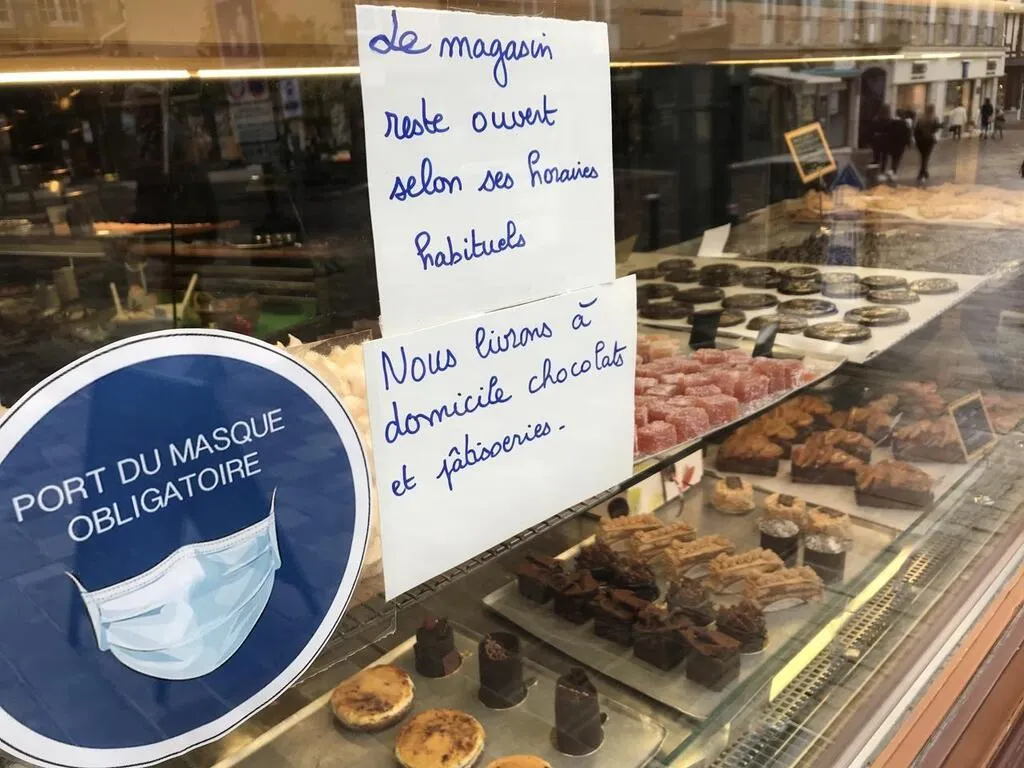 Le magasin
reste ouvert
selon ses horaires
habituels
Nous livrons à
domicile chocolats
et pâtisseries.
PORT DU MASQUE
OBLIGATOIRE